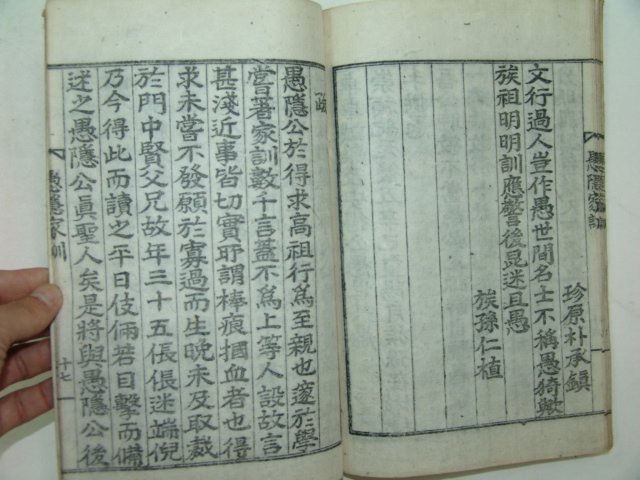 愚隱家訓
珍原朴承鎭
文行過人豈作愚世間名士不稱愚猗歟
族祖明明訓應警後昆迷且愚
族孫仁植
跋
愚隱公於得求高祖行爲至親也邃於學
嘗著家訓數千言蓋不爲上等人設故言
甚淺近事皆切實所謂棒痕摑血者也得
求未嘗不發願於寡過而生晚未及取裁
於門中賢父兄故年三十五倀倀迷端倪
乃今得此而讀之平日伎倆若目擊而備
述之愚隱公眞聖人矣是將與愚隱公後
愚隱家訓
十七